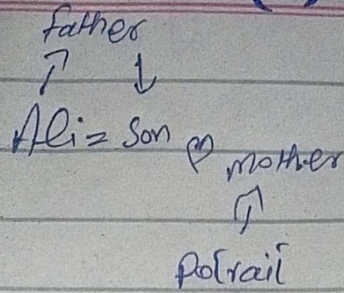 father
Ali = Son
mother
Potrait